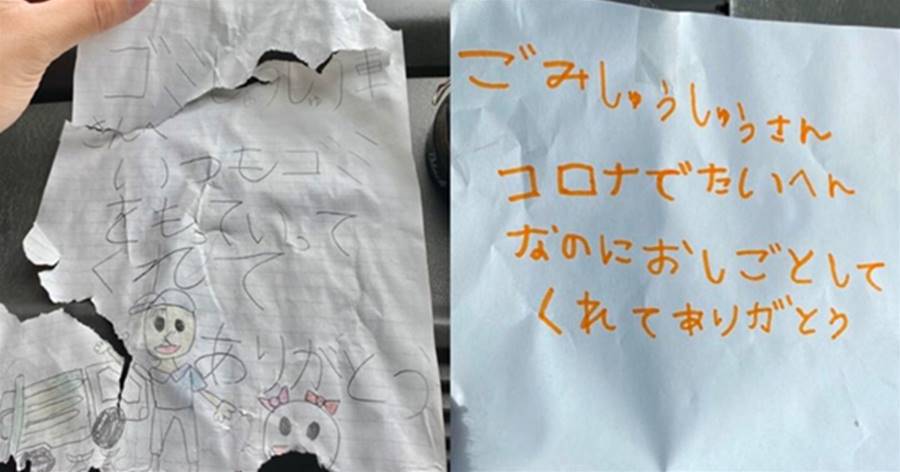 ゴミしゅうしゅう車
さんへ
いつもゴミ
をもっていって
くれて
ありがとう
ごみしゅうしゅうさん
コロナでたいへん
なのにおしごとして
くれてありがとう